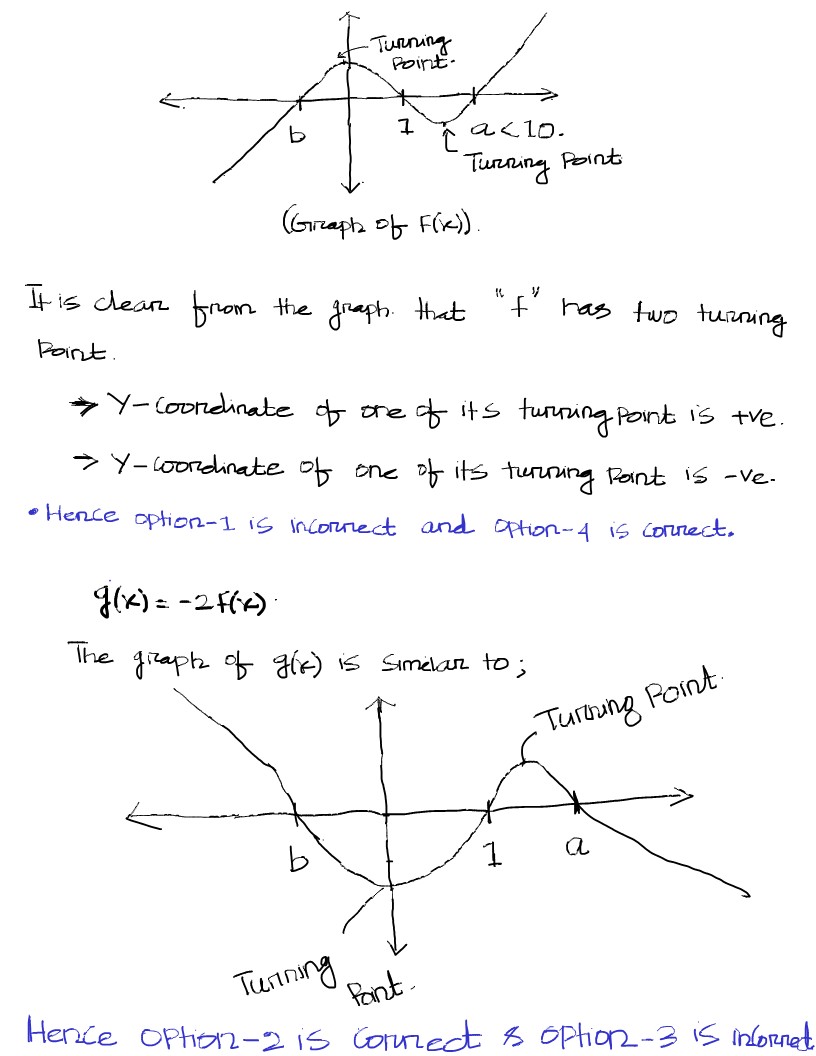 Turning
Point.
b
1
a<10.
Turning Point
(Graph of F(x)).
It is clear from the graph. that "f" has two turning
Point.
→ Y-coordinate of one of its turning point is +ve.
→ Y-coordinate of one of its turning point is -ve.
• Hence option-1 is incorrect and option-4 is correct.
g(x) = -2F(x).
The graph of g(x) is similar to;
Turning Point.
b
1
a
Turning
Point.
Hence option-2 is correct & option-3 is incorrect